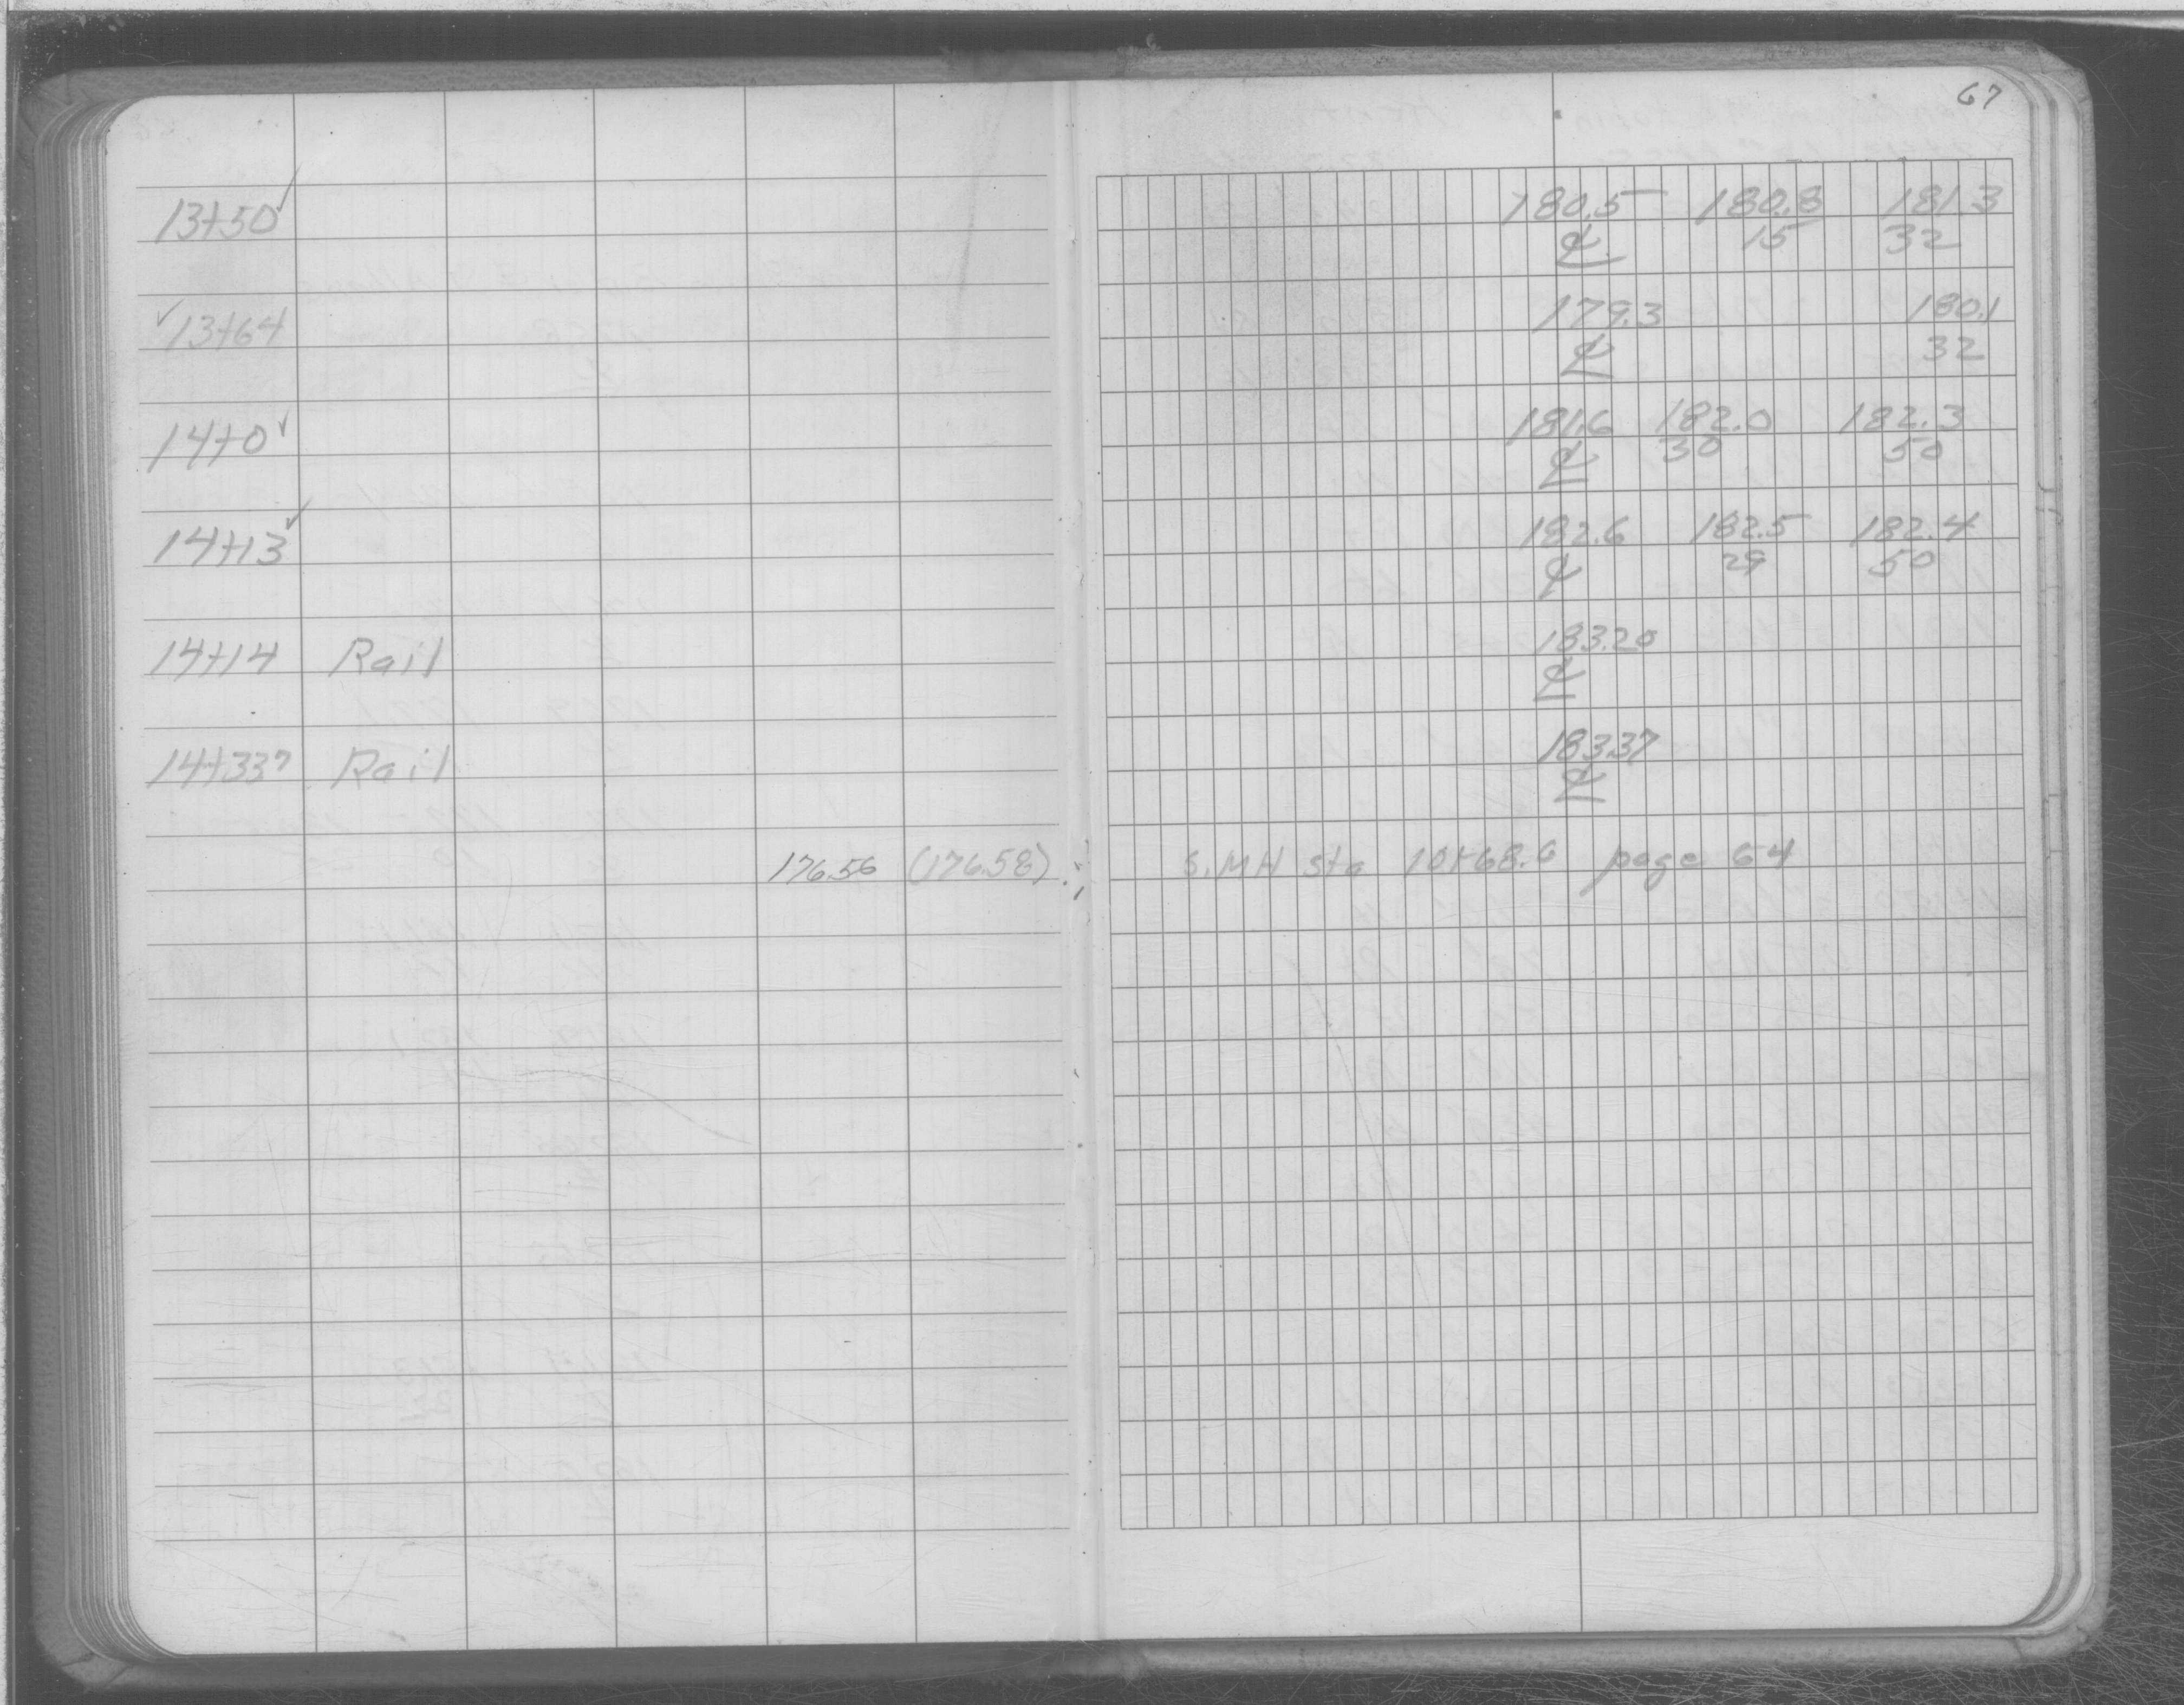 67
13+50✓ 180.5 180.8 181.3
℄ 15 32
✓13+64 179.3 180.1
℄ 32
14+0✓ 181.6 182.0 182.3
℄ 30 50
14+13✓ 182.6 182.5 182.4
℄ 29 50
14+14 Rail 183.20
℄
14+337 Rail 183.37
℄
176.56 (176.58) S.MH Sta 10+68.6 page 64